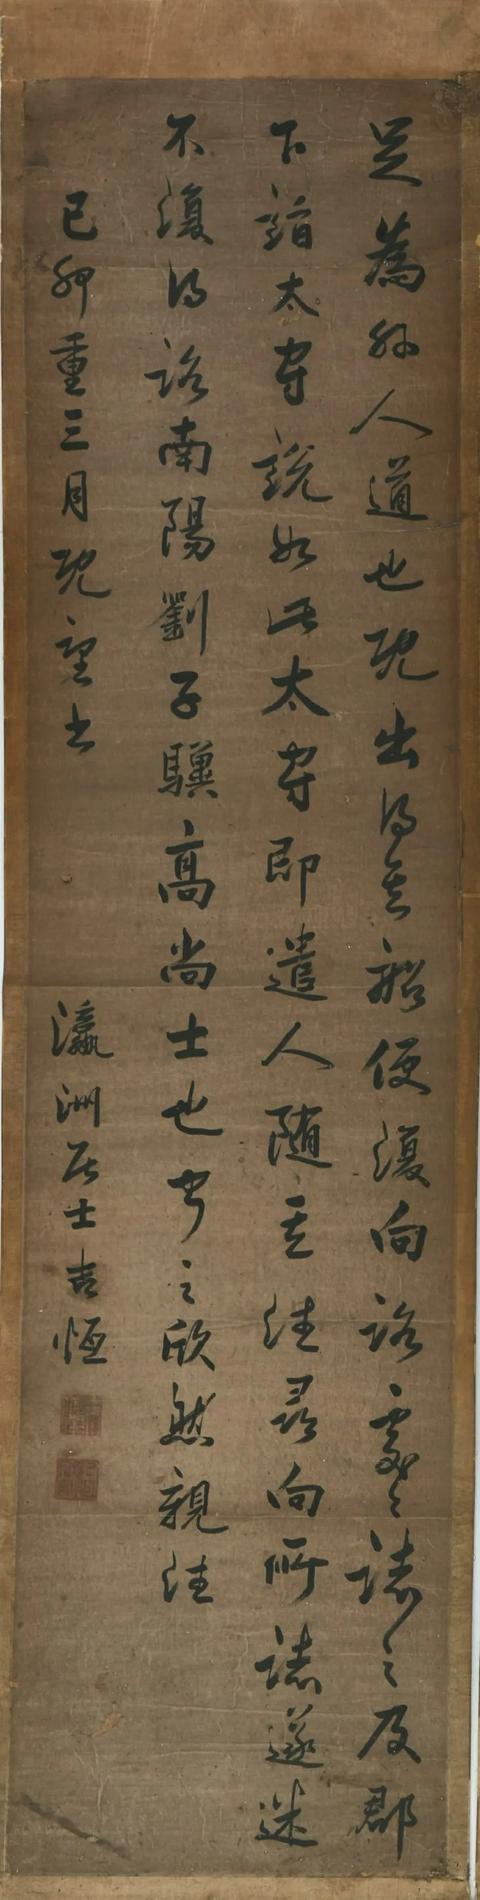 足為外人道也既出得其船便復向路處〻誌之及郡
下詣太守說如此太守即遣人随其往尋向所誌遂迷
不復得路南陽劉子驥高尚士也聞之欣然親往
己卯重三月既望書
瀛洲居士吉恆